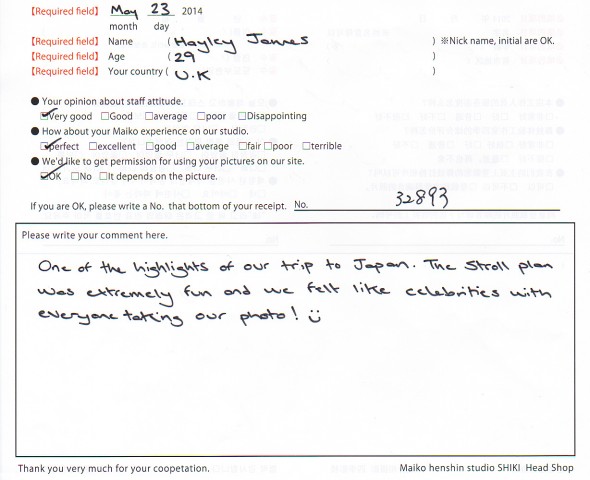 【Required field】 May 23 2014
month day
【Required field】 Name ( Hayley James ) ※Nick name, initial are OK.
【Required field】 Age ( 29 )
【Required field】 Your country ( U.K )
● Your opinion about staff attitude.
☑Very good □Good □average □poor □Disappointing
● How about your Maiko experience on our studio.
☑perfect □excellent □good □average □fair □poor □terrible
● We'd like to get permission for using your pictures on our site.
☑OK □No □It depends on the picture.
If you are OK, please write a No. that bottom of your receipt. No. 32893
Please write your comment here.
One of the highlights of our trip to Japan. The stroll plan
was extremely fun and we felt like celebrities with
everyone taking our photo! ü
Thank you very much for your coopetation. Maiko henshin studio SHIKI Head Shop